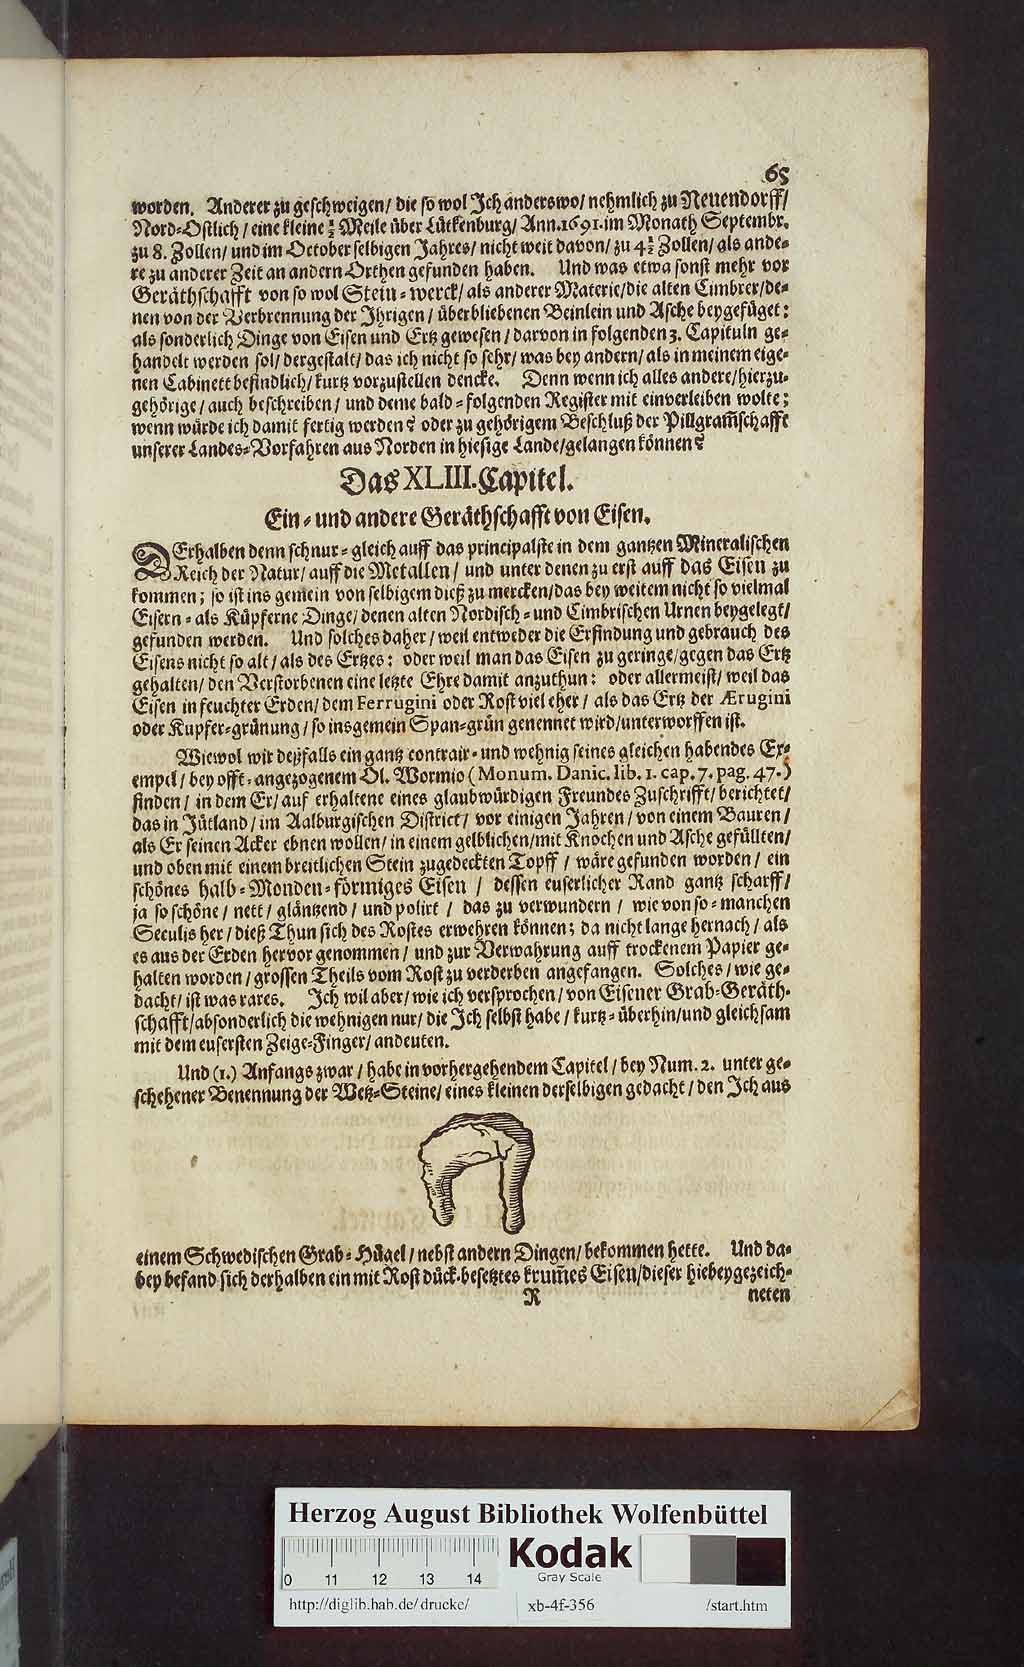 65
worden. Anderer zu geschweigen/ die so wol Ich anderswo/ nehmlich zu Neuendorff/
Nord-Ostlich/ eine kleine ½ Meile über Lütkenburg/ Ann. 1691. im Monath Septembr.
zu 8. Zollen/ und im October selbigen Jahres/ nicht weit davon/ zu 4½ Zollen/ als ande-
re zu anderer Zeit an andern Orthen gefunden haben. Und was etwa sonst mehr vor
Geräthschafft von so wol Stein-werck/ als anderer Materie/ die alten Cimbrer/ de-
nen von der Verbrennung der Ihrigen/ überbliebenen Beinlein und Asche beygefüget:
als sonderlich Dinge von Eisen und Ertz gewesen/ darvon in folgenden 3. Capituln ge-
handelt werden sol/ dergestalt/ das ich nicht so sehr/ was bey andern/ als in meinem eige-
nen Cabinett befindlich/ kurtz vorzustellen dencke. Denn wenn ich alles andere/ hierzu-
gehörige/ auch beschreiben/ und deme bald-folgenden Register mit einverleiben wolte;
wenn würde ich damit fertig werden? oder zu gehörigem Beschluß der Pillgram̄schafft
unserer Landes-Vorfahren aus Norden in hiesige Lande/ gelangen können?
Das XLIII. Capitel.
Ein- und andere Geräthschafft von Eisen.
DErhalben denn schnur-gleich auff das principalste in dem gantzen Mineralischen
Reich der Natur/ auff die Metallen/ und unter denen zu erst auff das Eisen zu
kommen; so ist ins gemein von selbigem dieß zu mercken/ das bey weitem nicht so vielmal
Eisern- als Küpferne Dinge/ denen alten Nordisch- und Cimbrischen Urnen beygelegt/
gefunden werden. Und solches daher/ weil entweder die Erfindung und gebrauch des
Eisens nicht so alt/ als des Ertzes: oder weil man das Eisen zu geringe/ gegen das Ertz
gehalten/ den Verstorbenen eine letzte Ehre damit anzuthun: oder allermeist/ weil das
Eisen in feuchter Erden/ dem Ferrugini oder Rost viel eher/ als das Ertz der Ærugini
oder Kupfer-grünung/ so insgemein Span-grün genennet wird/ unterworffen ist.
Wiewol wir deßfalls ein gantz contrair- und wehnig seines gleichen habendes Ex-
empel/ bey offt-angezogenem Ol. Wormio (Monum. Danic. lib. 1. cap. 7. pag. 47.)
finden/ in dem Er/ auf erhaltene eines glaubwürdigen Freundes Zuschrifft/ berichtet/
das in Jütland/ im Aalburgischen District/ vor einigen Jahren/ von einem Bauren/
als Er seinen Acker ebnen wollen/ in einem gelblichen/ mit Knochen und Asche gefüllten/
und oben mit einem breitlichen Stein zugedeckten Topff/ wäre gefunden worden/ ein
schönes halb-Monden-förmiges Eisen/ dessen euserlicher Rand gantz scharff/
ja so schöne/ nett/ gläntzend/ und polirt/ das zu verwundern/ wie von so-manchen
Seculis her/ dieß Thun sich des Rostes erwehren können; da nicht lange hernach/ als
es aus der Erden hervor genommen/ und zur Verwahrung auff trockenem Papier ge-
halten worden/ grossen Theils vom Rost zu verderben angefangen. Solches/ wie ge-
dacht/ ist was rares. Ich wil aber/ wie ich versprochen/ von Eisener Grab-Geräth-
schafft/ absonderlich die wehnigen nur/ die Ich selbst habe/ kurtz-überhin/ und gleichsam
mit dem eusersten Zeige-Finger/ andeuten.
Und (1.) Anfangs zwar/ habe in vorhergehendem Capitel/ bey Num. 2. unter ge-
schehener Benennung der Wetz-Steine/ eines kleinen derselbigen gedacht/ den Ich aus
einem Schwedischen Grab-Hügel/ nebst andern Dingen/ bekommen hette. Und da-
bey befand sich derhalben ein mit Rost dück-besetztes krum̄es Eisen/ dieser hiebey gezeich-
R neten
Herzog August Bibliothek Wolfenbüttel
0 11 12 13 14
Kodak
Gray Scale
http://diglib.hab.de/drucke/ xb-4f-356 /start.htm